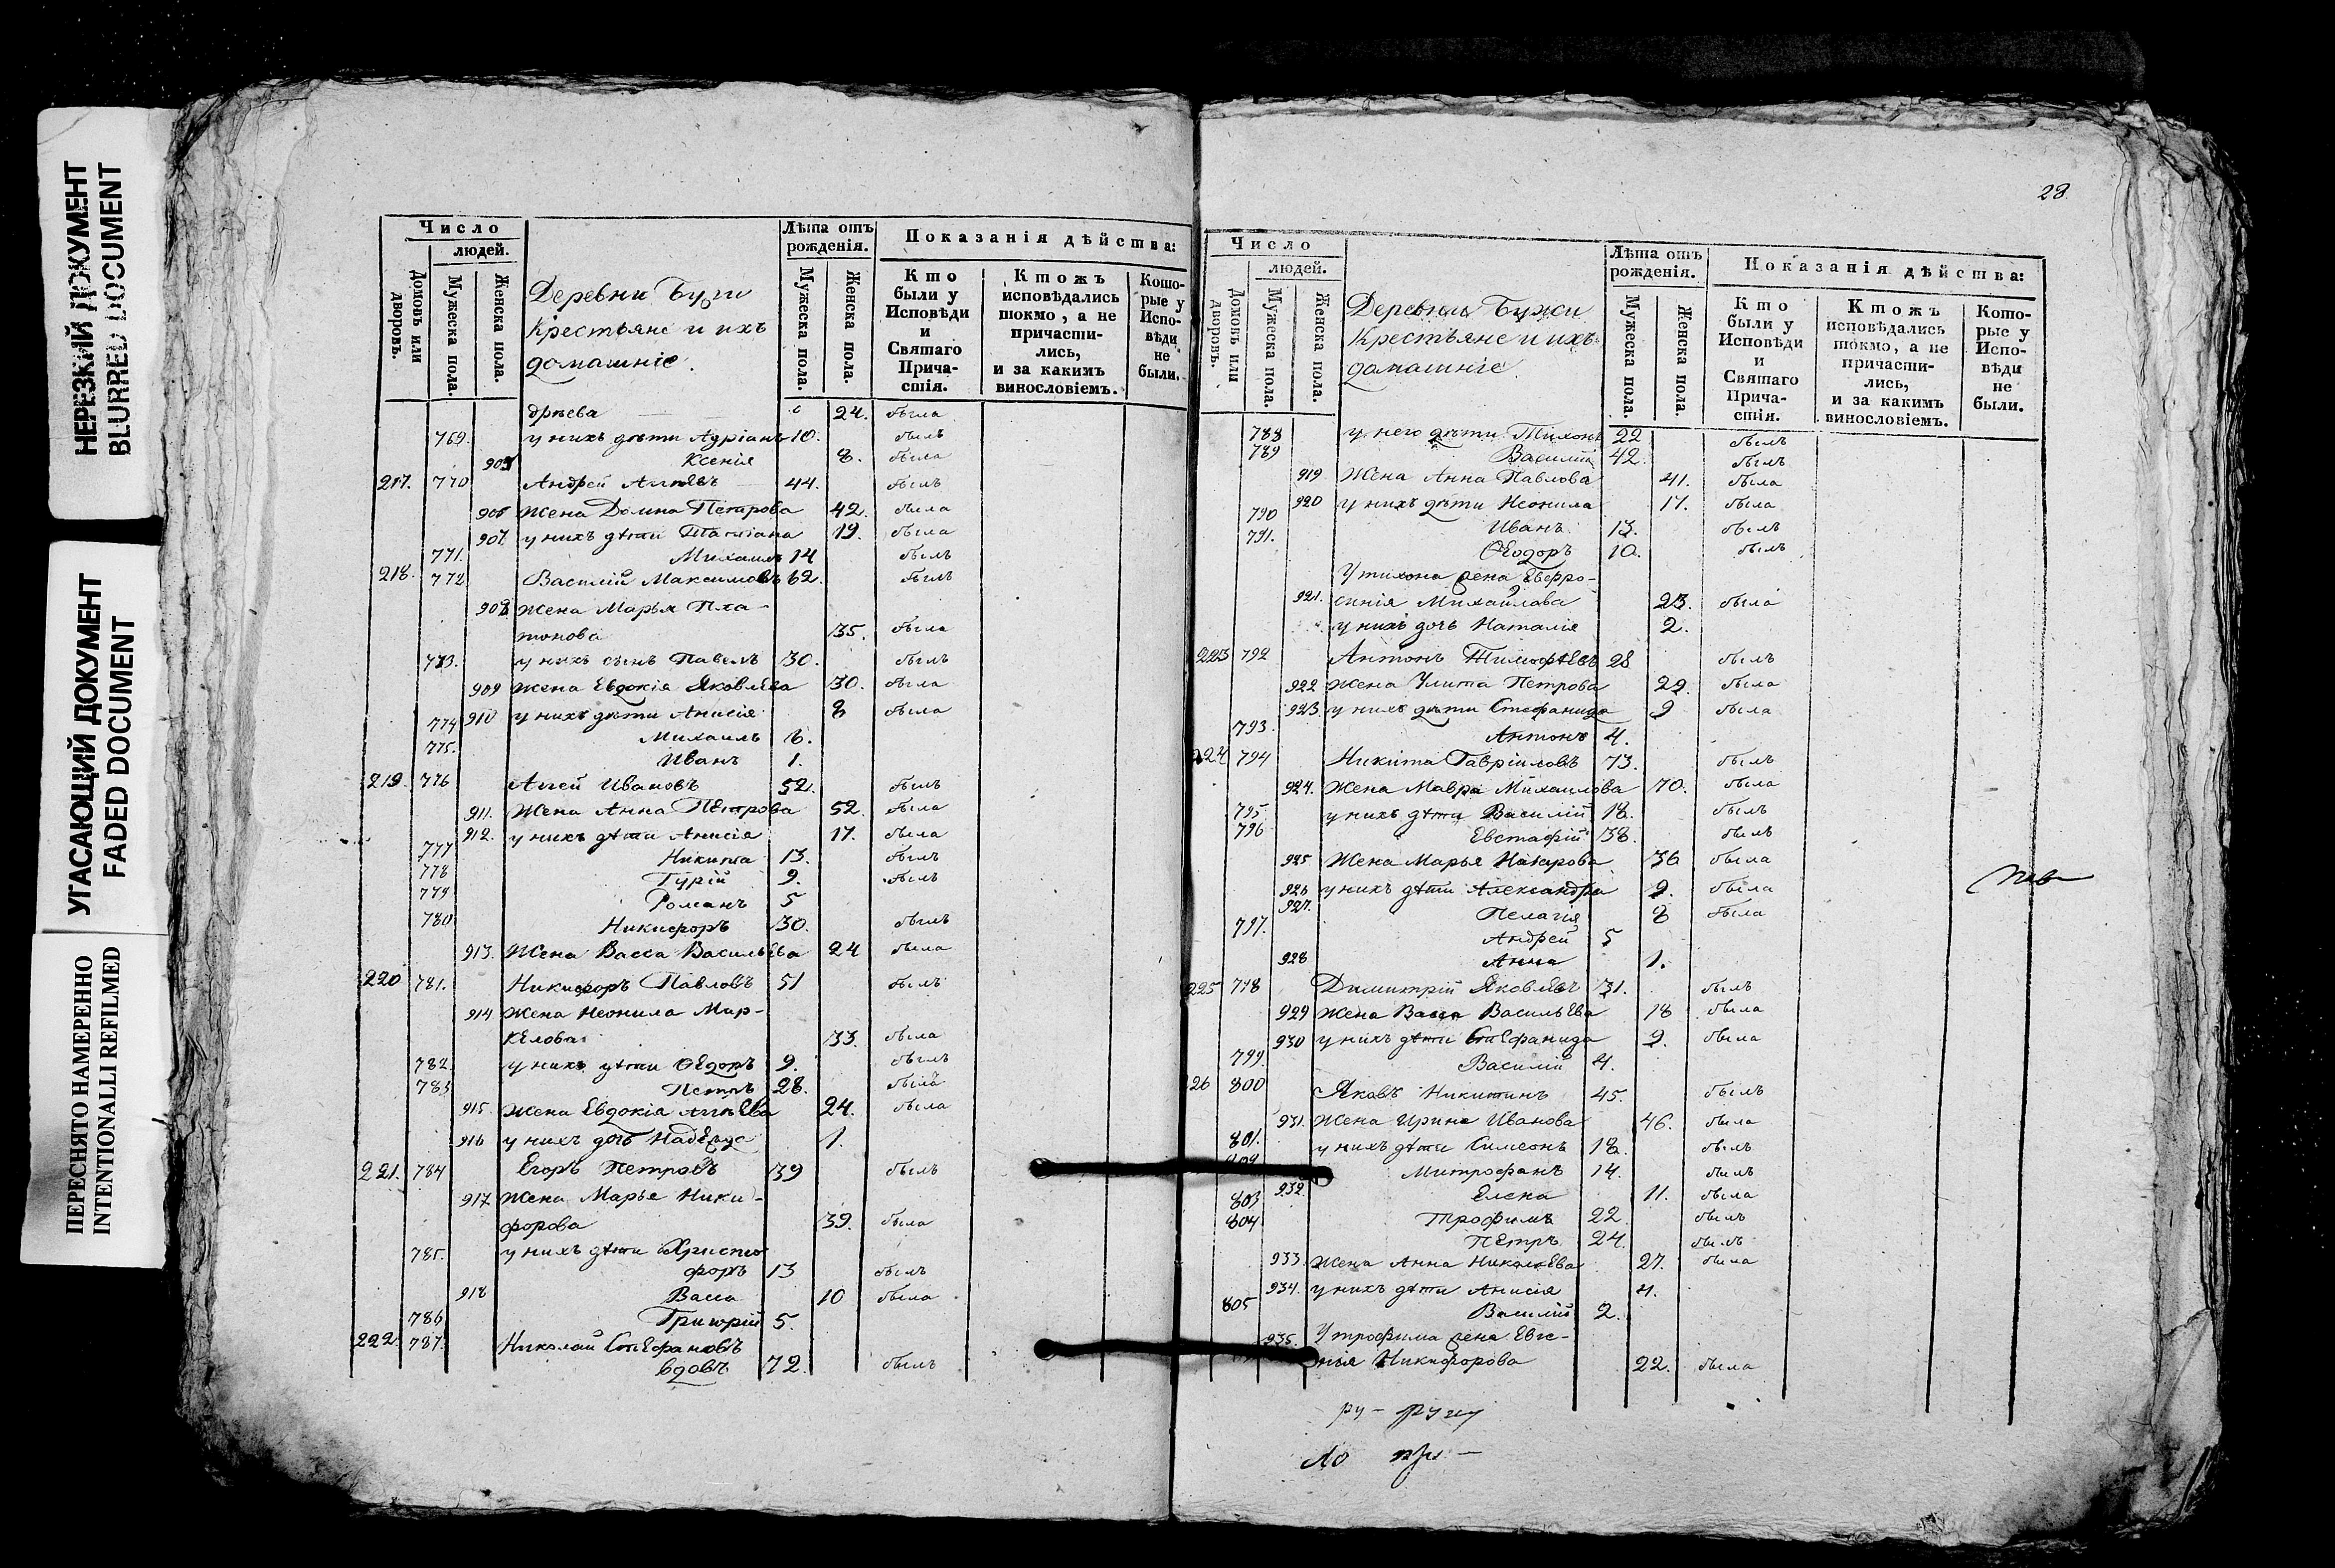 НЕРЕЗКИЙ ДОКУМЕНТ
BLURRED DOCUMENT
УГАСАЮЩИЙ ДОКУМЕНТ
FADED DOCUMENT
ПЕРЕСНЯТО НАМЕРЕННО
INTENTIONALLI REFILMED
Число
людей.
Домовъ или дворовъ.
Мужеска пола.
Женска пола.
Деревни
Крестьяне и ихъ
домашніе.
Лѣта отъ рожденія.
Мужеска пола.
Женска пола.
Показанія дѣйства:
Кто были у Исповѣди и Святаго Причастія.
Ктожъ исповѣдались токмо, а не причастились, и за какимъ винословіемъ.
Которые у Исповѣди не были.
дрѣева 24. была
769. у нихъ дѣти Адріанъ 10. былъ
905 Ксенія 8. была
217. 770 Андрей 44. былъ
906 Жена Домна Петрова 42. была
907. у нихъ дѣти Татіана 19. была
771. Михаилъ 14 былъ
218. 772 Василій Максимовъ 62. былъ
908 Жена Марья Пла-
тонова 35. была
773. у нихъ сынъ Павелъ 30. былъ
909 Жена Евдокія Яковлева 30. была
910 у нихъ дѣти Анисія 8 была
774 Михаилъ 6.
775. Иванъ 1.
219. 776 Алѣй Ивановъ 52. былъ
911. Жена Анна Петрова 52. была
912. у нихъ дѣти Анисія 17. была
777 Никита 13. былъ
778 Гурій 9. былъ
779 Романъ 5
780 Никифоръ 30. былъ
913. Жена Васса Васильева 24 была
220 781. Никифоръ Павловъ 51 былъ
914 Жена Неонила Мар-
келова 33. была
782. у нихъ дѣти Ѳедоръ 9. былъ
783 Петръ 28. была
915. Жена Евдокія 24. была
916 у нихъ дочь Надежда 1.
221. 784 Егоръ Петровъ 39 былъ
917 Жена Марье Ники-
форова 39. была
785. у нихъ дѣти Христо
форъ 13 былъ
918 Васса 10 была
786 Григорій 5.
222. 787. Николай Стефановъ
вдовъ 72. былъ
28
Число
людей.
Домовъ или дворовъ.
Мужеска пола.
Женска пола.
Деревни Бужи
Крестьяне и ихъ
домашніе.
Лѣта отъ рожденія.
Мужеска пола.
Женска пола.
Показанія дѣйства:
Кто были у Исповѣди и Святаго Причастія.
Ктожъ исповѣдались токмо, а не причастились, и за какимъ винословіемъ.
Которые у Исповѣди не были.
788 у него дѣти Тихонъ 22 былъ
789 Василій 42. былъ
919 Жена Анна Павлова 41. была
920 у нихъ дѣти Неонила 17. была
790 Иванъ 13. былъ
791. Ѳеодоръ 10. былъ
У тихона жена Евфро-
921. синія Михайлова 23. была
у нихъ дочь Наталія 2.
223 792 Антонъ Тимофѣевъ 28 былъ
922 Жена Улита Петрова 29. была
923. у нихъ дѣти Стефанида 9 была
793. Антонъ 4.
224 794 Никита Гавріиловъ 73. былъ
924. Жена Мавра Михаилова 70. была
795. у нихъ дѣти Василій 18. былъ
796 Евстафій 38. былъ
925 Жена Марья Назарова 36 была
926 у нихъ дѣти Александра 9. была
927. Пелагія 8 была
797. Андрей 5
928 Анна 1.
225 798 Димитрій Яковлевъ 31. былъ
929 Жена Васса Васильева 18 была
930 у нихъ дѣти Стефанида 9. была
799. Василій 4.
226 800 Яковъ Никитинъ 45. былъ
931. Жена Ирина Иванова 46. была
801. у нихъ дѣти Симеонъ 18. былъ
Митрофанъ 14. былъ
932. Елена 11. была
803 Трофимъ 22 былъ
804 Петръ 24. былъ
933. Жена Анна Николаева 27. была
934. у нихъ дѣти Анисія 4.
805 Василій 2.
935. У трофима жена Евге-
нья Никифорова 22. была